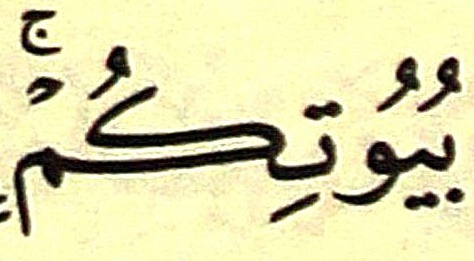 بُيُوتِكُمْ ۚ